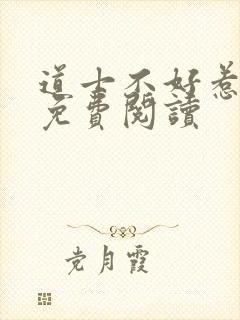 道士不好惹
免費閱讀
党月霞